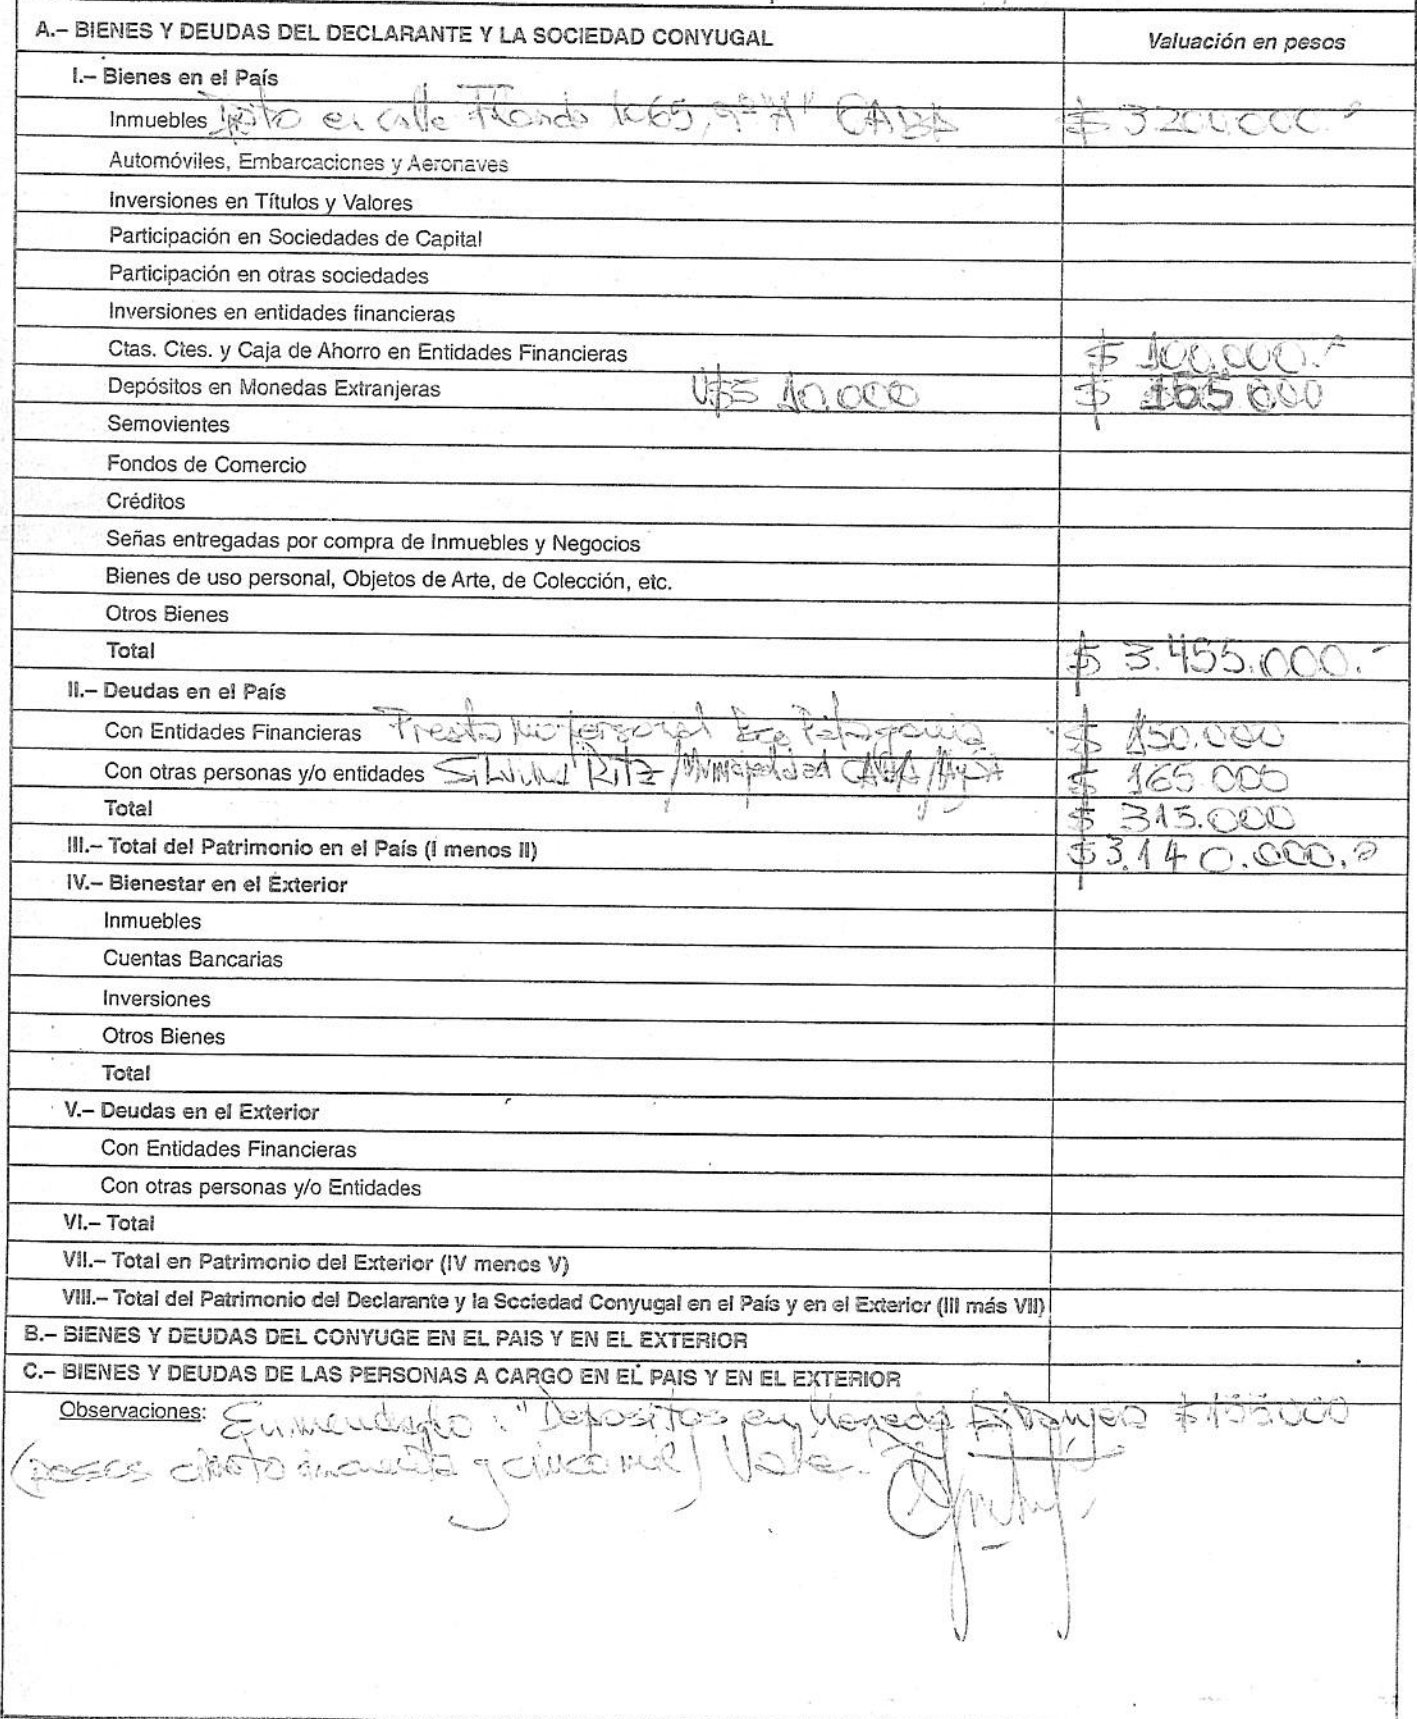 A.– BIENES Y DEUDAS DEL DECLARANTE Y LA SOCIEDAD CONYUGAL Valuación en pesos
I.– Bienes en el País
Inmuebles Dpto en calle 1065, 9º "A" CABA $ 3200.000.-
Automóviles, Embarcaciones y Aeronaves
Inversiones en Títulos y Valores
Participación en Sociedades de Capital
Participación en otras sociedades
Inversiones en entidades financieras
Ctas. Ctes. y Caja de Ahorro en Entidades Financieras $ 100.000.-
Depósitos en Monedas Extranjeras U$S 10.000 $ 155 000
Semovientes
Fondos de Comercio
Créditos
Señas entregadas por compra de Inmuebles y Negocios
Bienes de uso personal, Objetos de Arte, de Colección, etc.
Otros Bienes
Total $ 3.455.000.-
II.– Deudas en el País
Con Entidades Financieras Prestamo personal Bco Patagonia $ 150.000
Con otras personas y/o entidades Silvina Ritz / Municipalidad CABA / AySA $ 165.000
Total $ 315.000
III.– Total del Patrimonio en el País (I menos II) $ 3.140.000.-
IV.– Bienestar en el Exterior
Inmuebles
Cuentas Bancarias
Inversiones
Otros Bienes
Total
V.– Deudas en el Exterior
Con Entidades Financieras
Con otras personas y/o Entidades
VI.– Total
VII.– Total en Patrimonio del Exterior (IV menos V)
VIII.– Total del Patrimonio del Declarante y la Sociedad Conyugal en el País y en el Exterior (III más VII)
B.– BIENES Y DEUDAS DEL CONYUGE EN EL PAIS Y EN EL EXTERIOR
C.– BIENES Y DEUDAS DE LAS PERSONAS A CARGO EN EL PAIS Y EN EL EXTERIOR
Observaciones: Enmendado: "Depositos en Moneda Extranjera $ 155000
(pesos ciento cincuenta y cinco mil) Vale.